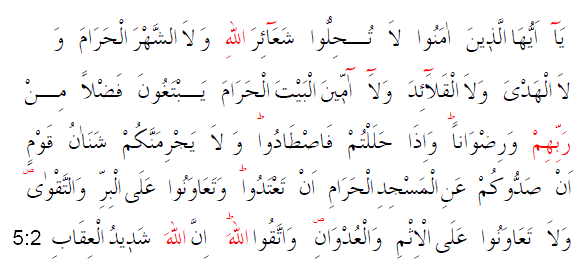 يَٓا اَيُّهَا الَّذ۪ينَ اٰمَنُوا لَا تُـحِلُّوا شَعَٓائِرَ اللهِ وَ لَا الشَّهْرَ الْحَرَامَ وَ
لَا الْهَدْىَ وَلَا الْقَلَٓائِدَ وَلَٓا آٰمّ۪ينَ الْبَيْتَ الْحَرَامَ يَـبْتَغُونَ فَضْلاً مِـنْ
رَبِّهِمْ وَرِضْوَاناًۜ وَاِذَا حَلَلْتُمْ فَاصْطَادُواۜ وَ لَا يَجْرِمَنَّكُمْ شَنَاٰنُ قَوْمٍ
اَنْ صَدُّوكُمْ عَنِ الْمَسْجِدِ الْحَرَامِ اَنْ تَعْتَدُواۜ وَتَعَاوَنُوا عَلَى الْبِرِّ وَالتَّقْوٰىۖ
وَلَا تَعَاوَنُوا عَلَى الْاِثْمِ وَالْعُدْوَانِۖ وَاتَّقُوا اللهَۜ اِنَّ اللهَ شَد۪يدُ الْعِقَابِ 5:2